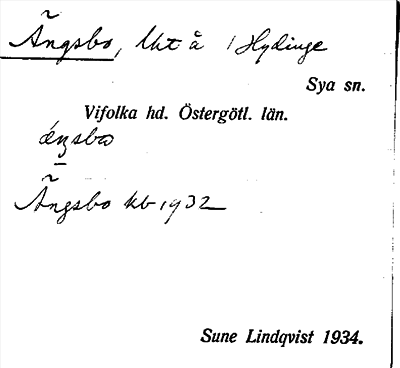 Ängsbo, lht å 1 Hydinge
Sya sn.
Vifolka hd. Östergötl. län.
Ängsbo kb 1932
Sune Lindqvist 1934.